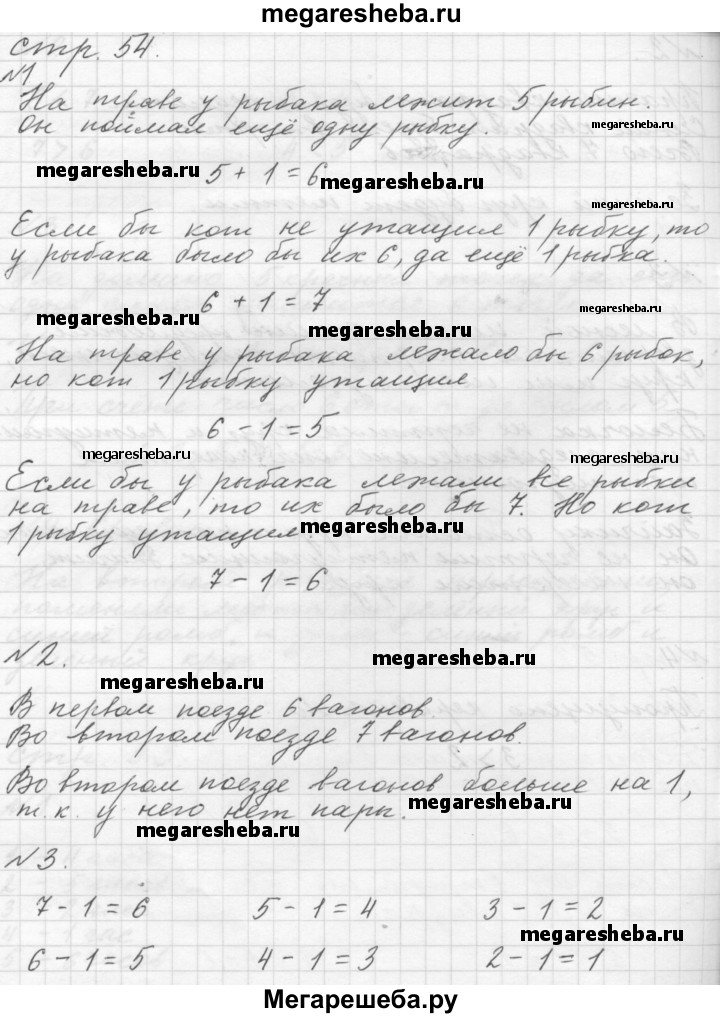 megaresheba.ru
стр. 54.
№1
На траве у рыбака лежит 5 рыбин.
Он поймал ещё одну рыбку.
megaresheba.ru
megaresheba.ru
5 + 1 = 6
megaresheba.ru
megaresheba.ru
Если бы кот не утащил 1 рыбку, то
у рыбака было бы их 6, да ещё 1 рыбка.
megaresheba.ru
6 + 1 = 7
megaresheba.ru
megaresheba.ru
На траве у рыбака лежало бы 6 рыбок,
но кот 1 рыбку утащил
6 - 1 = 5
megaresheba.ru
megaresheba.ru
Если бы у рыбака лежали все рыбки
на траве, то их было бы 7. Но кот
1 рыбку утащил.
megaresheba.ru
7 - 1 = 6
№2.
megaresheba.ru
megaresheba.ru
В первом поезде 6 вагонов.
Во втором поезде 7 вагонов.
Во втором поезде вагонов больше на 1,
т.к. у него нет пары.
megaresheba.ru
megaresheba.ru
№3.
7 - 1 = 6 5 - 1 = 4 3 - 1 = 2
megaresheba.ru
6 - 1 = 5 4 - 1 = 3 2 - 1 = 1
Мегарешеба.ру